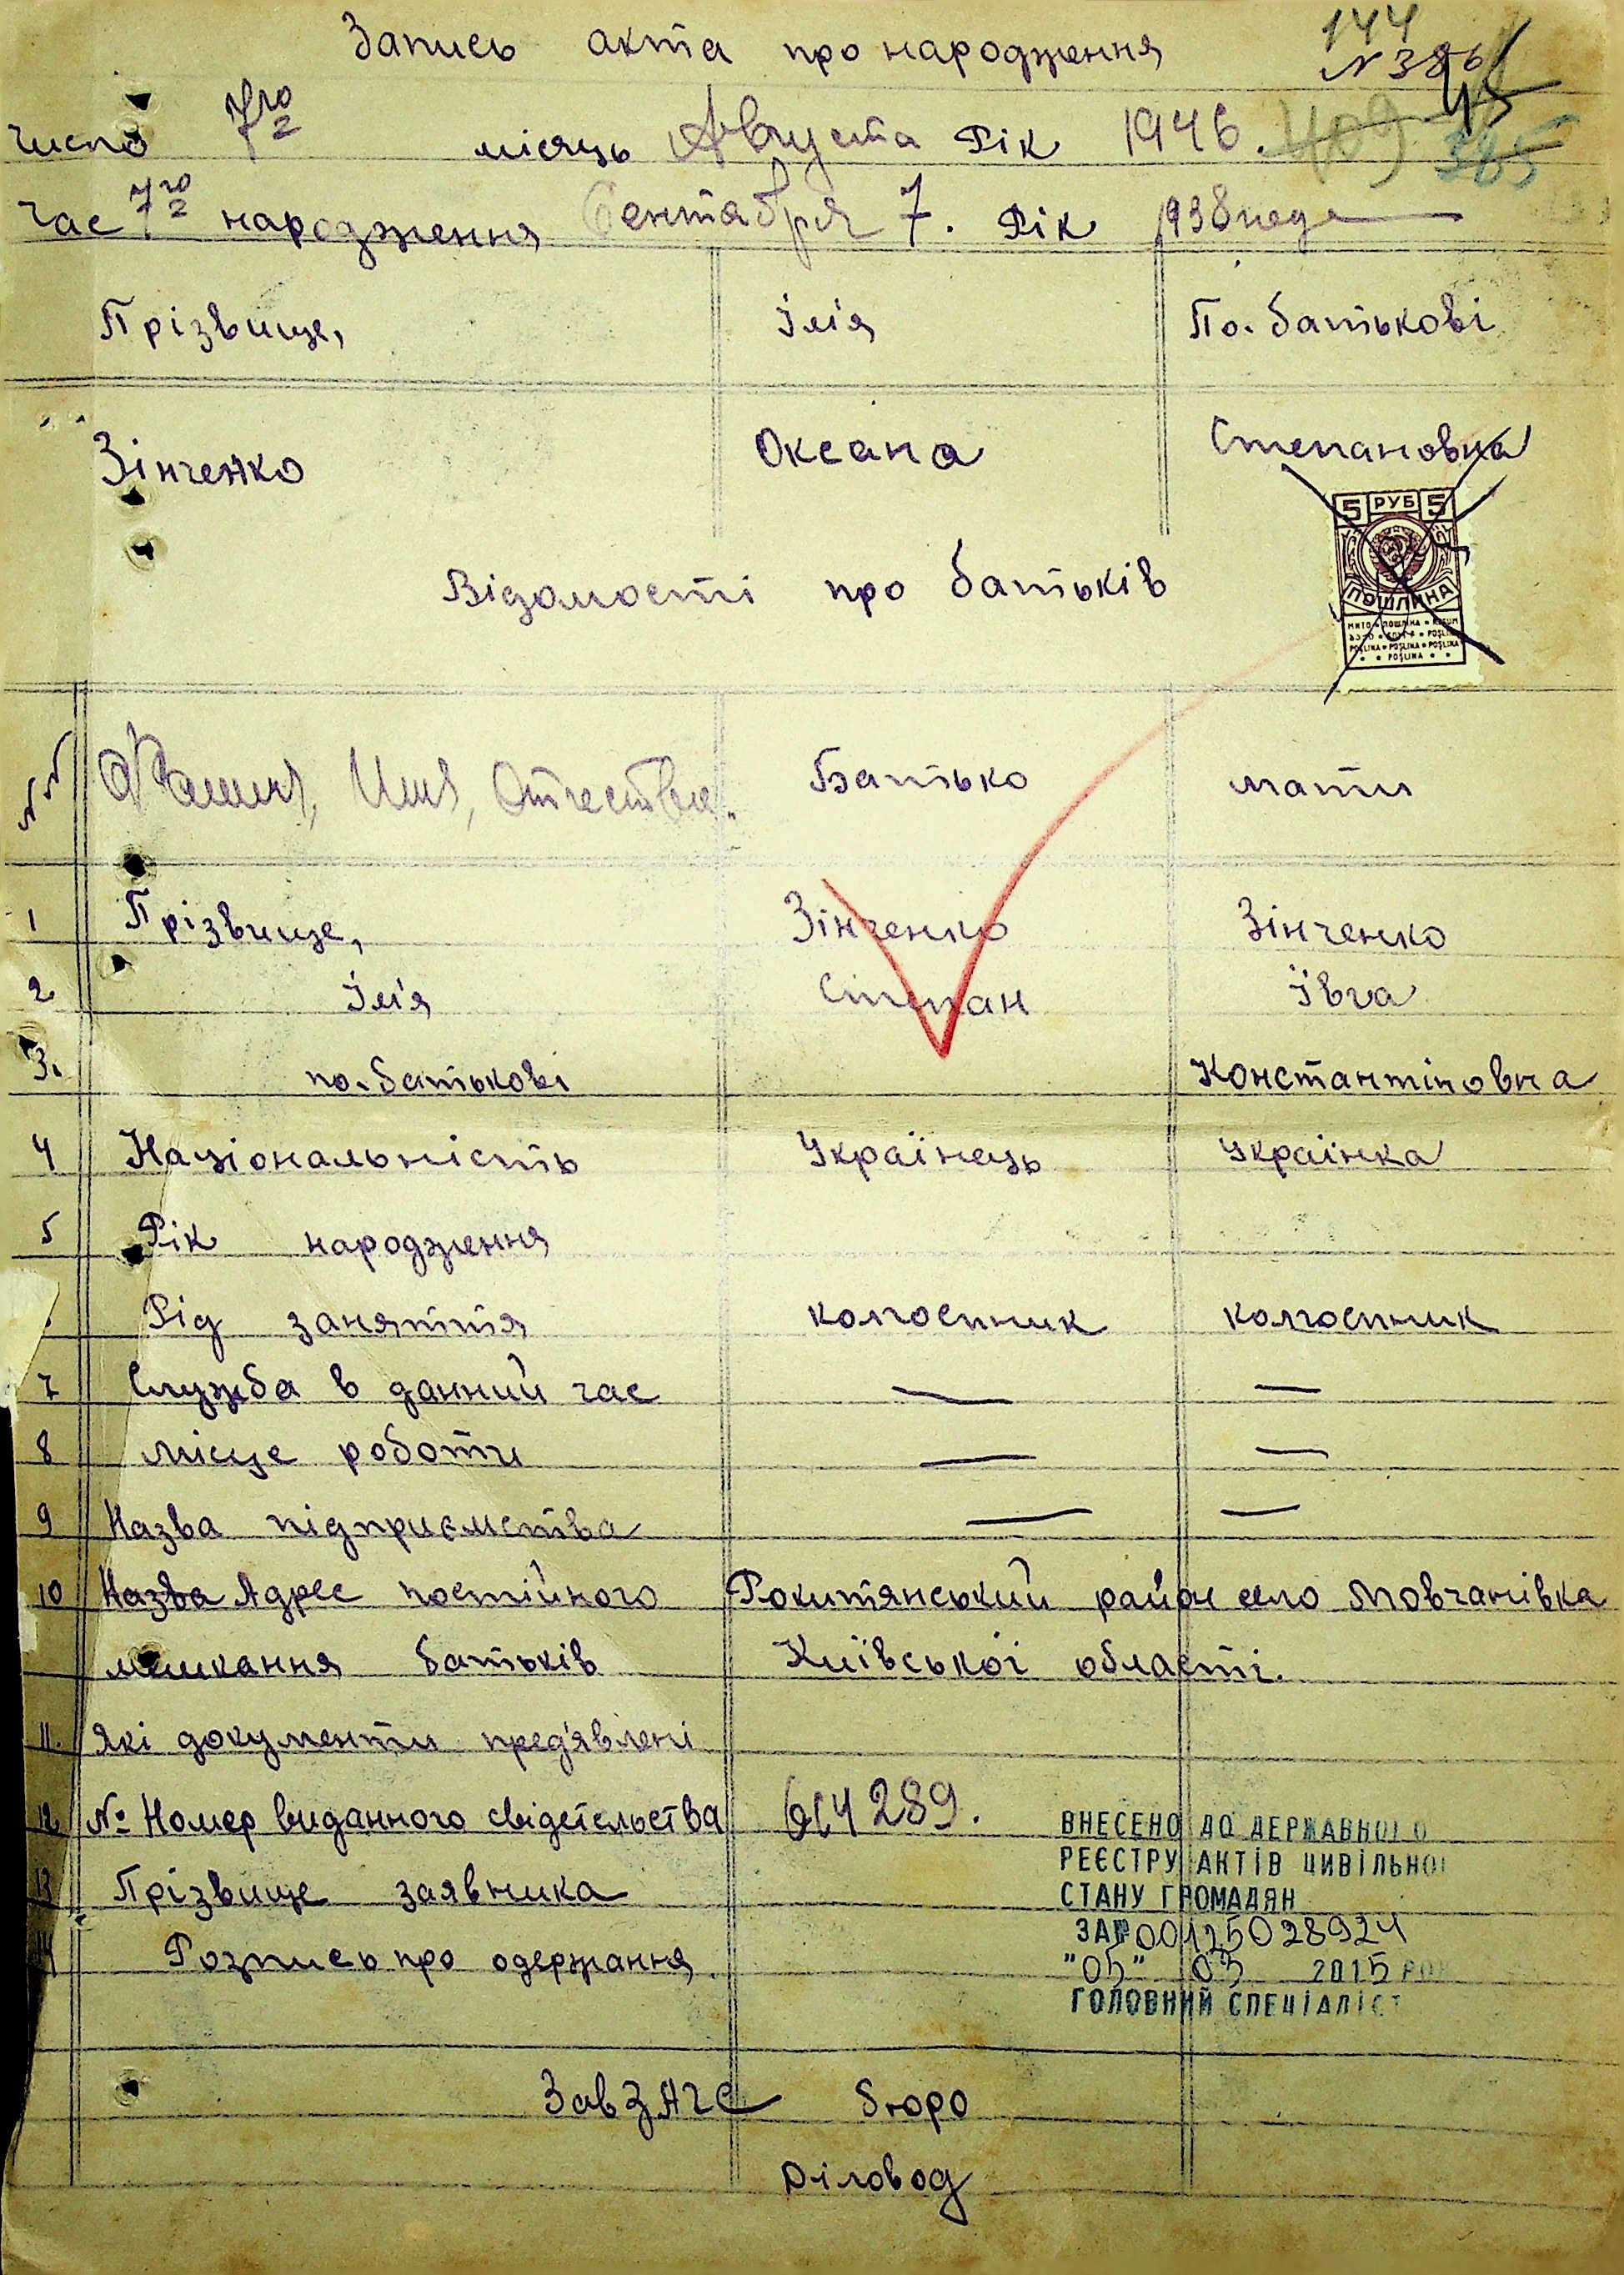 Запись акта про народження
144
N 386
45
число 7го місяць Августа Рік 1946. 409 385
Час 7го народження Сентября 7. Рік 1938 года
Прізвище, Імʼя По. батькові
Зінченко Оксана Степановна
5 РУБ 5
ПОШЛИНА
Відомості про батьків
№№ Фамилия, Имя, Отчество. Батько мати
1 Прізвище, Зінченко Зінченко
2 Імʼя Степан Ївга
3. по. батькові Константіновна
4 Національність Українець Українка
5 Рік народження
Рід заняття колгоспник колгоспник
7 Служба в данний час — —
8 місце роботи — —
9 Назва підприємства — —
10 Назва Адрес постійного Рокитянський район село Мовчанівка
мешкання батьків Київської області.
11. які документи предʼявлені
12 № Номер виданного свідетельства 614289.
13 Прізвище заявника
14 Розпись про одержання
ВНЕСЕНО ДО ДЕРЖАВНОГО
РЕЄСТРУ АКТІВ ЦИВІЛЬНОГО
СТАНУ ГРОМАДЯН
ЗА № 00125028924
"05" 03 2015 РОК
ГОЛОВНИЙ СПЕЦІАЛІСТ
Зав ЗАГС бюро
Діловод